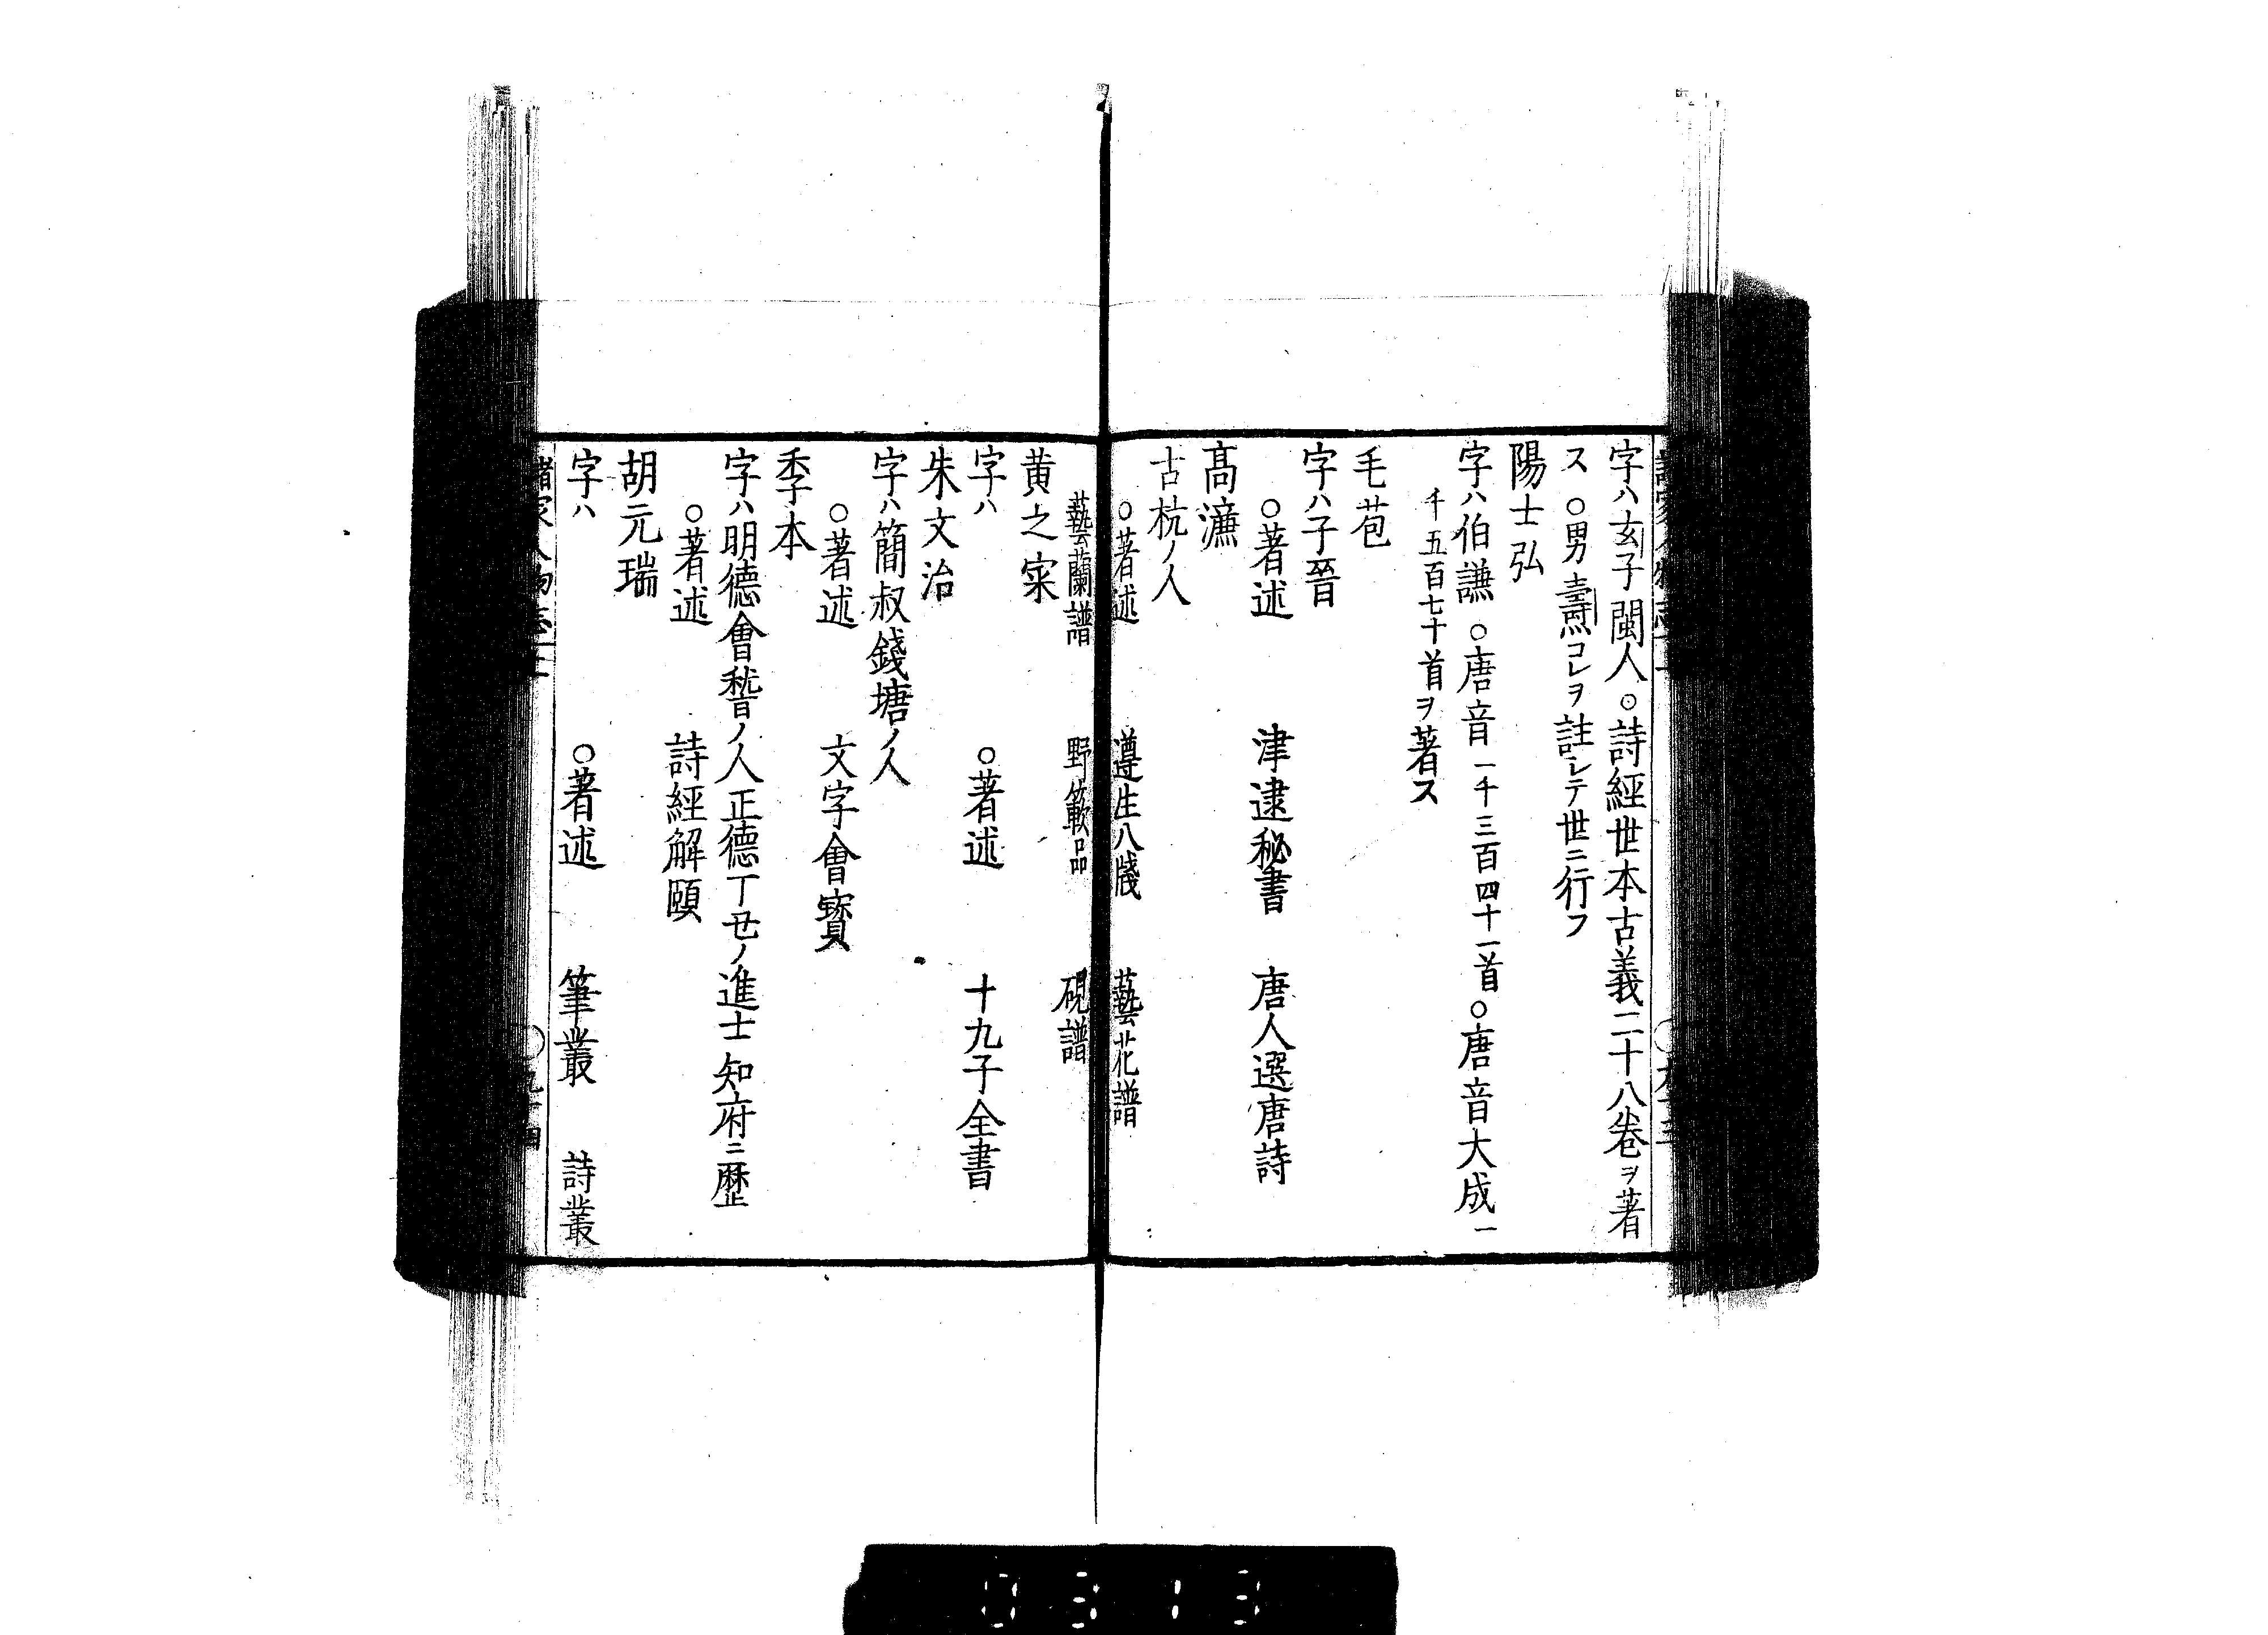 字ハ玄子閩人○詩經世本古義二十八巻ヲ著
ス○男燾コレヲ註シテ世ニ行フ
陽士弘
字ハ伯謙○唐音一千三百四十一首○唐音大成一
千五百七十首ヲ著ス
毛苞
字ハ子晉
○著述 津逮秘書 唐人選唐詩
髙濂
古杭ノ人
○著述 遵生八牋 藝花譜
藝蘭譜 野蔌品 硯譜
黄之寀
字ハ ○著述 十九子全書
朱文治
字ハ簡叔錢塘ノ人
○著述 文字會寳
季本
字ハ明德會稽ノ人正德丁丑ノ進士知府ニ歷
○著述 詩經解頤
胡元瑞
字ハ ○著述 筆叢 詩叢
諸家人物志 上 ○九十四
0313